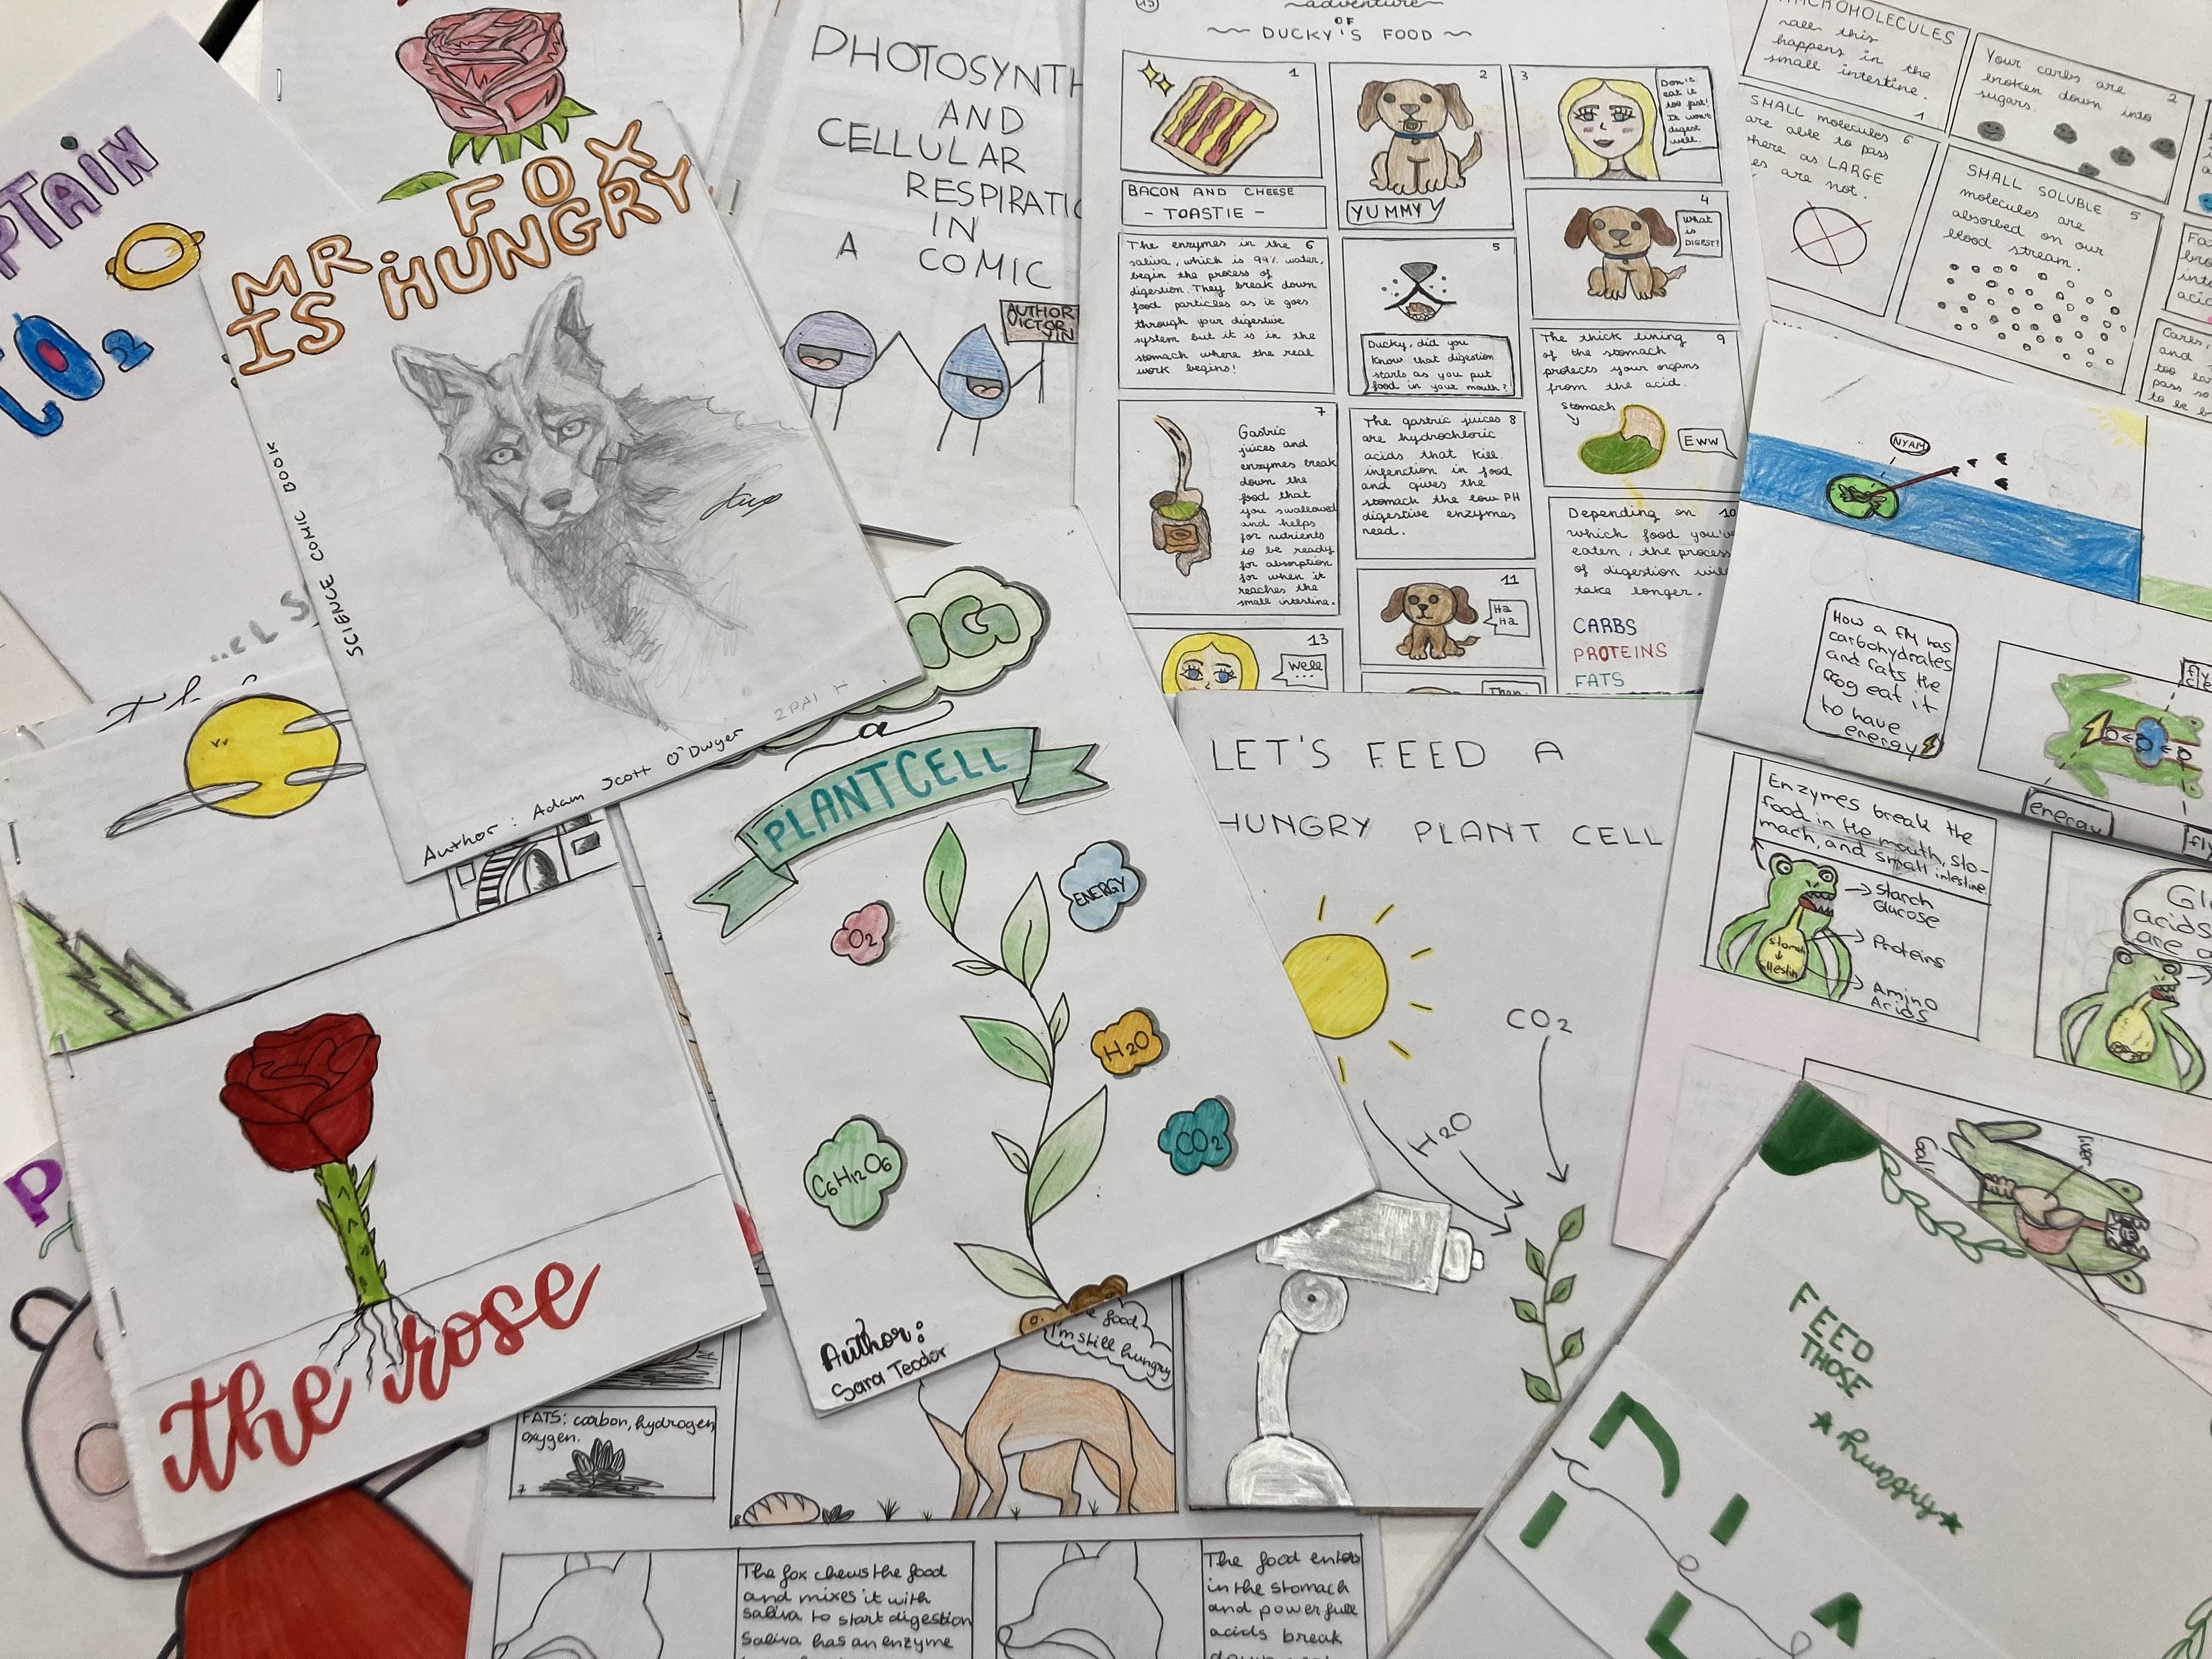 MR FOX
IS HUNGRY
SCIENCE COMIC BOOK
Author: Adam Scott O'Dwyer
CO2
PHOTOSYNTH
AND
CELLULAR
RESPIRATIO
IN
A COMIC
AUTHOR
VICTOR
YIN
15
adventure
OF
DUCKY'S FOOD
1
BACON AND CHEESE
- TOASTIE -
2
YUMMY
3
Don't
eat it
too fast!
It won't
digest
well.
4
What
is
DIGEST?
5
Ducky, did you
know that digestion
starts as you put
food in your mouth?
The enzymes in the 6
saliva, which is 99% water,
begin the process of
digestion. They break down
food particles as it goes
through your digestive
system but it is in the
stomach where the real
work begins!
7
Gastric
juices and
enzymes break
down the
food that
you swallowed
and helps
for nutrients
to be ready
for absorption
for when it
reaches the
small intestine.
The gastric juices 8
are hydrochloric
acids that kill
infenction in food
and gives the
stomach the low PH
digestive enzymes
need.
The thick lining 9
of the stomach
protects your organs
from the acid.
stomach
Eww
Depending on 10
which food you've
eaten, the process
of digestion will
take longer.
CARBS
PROTEINS
FATS
11
Ha
Ha
13
Well
...
Then
MACROMOLECULES
all this
happens in the
small intestine.
1
Your carbs are 2
broken down into
sugars.
SMALL molecules 6
are able to pass
where as LARGE
are not.
SMALL SOLUBLE 5
molecules are
absorbed on our
blood stream.
Carbs,
and
too
pass so
to be b
NYAM
How a fly has
carbohydrates
and fats the
frog eat it
to have
energy
energy
fly
Enzymes break the
food in the mouth, sto-
mach, and small intestine.
Starch
Glucose
Proteins
Amino
Acids
acids
are a
liver
Gall
a
PLANT CELL
O2
ENERGY
H2O
C6H12O6
CO2
Author:
Sara Teodor
LET'S FEED A
HUNGRY PLANT CELL
CO2
H2O
the rose
food
I'm still hungry
FATS: carbon, hydrogen,
oxygen.
7
8
The fox chews the food
and mixes it with
saliva to start digestion
Saliva has an enzyme
The food enters
in the stomach
and powerfull
acids break
FEED
THOSE
hungry